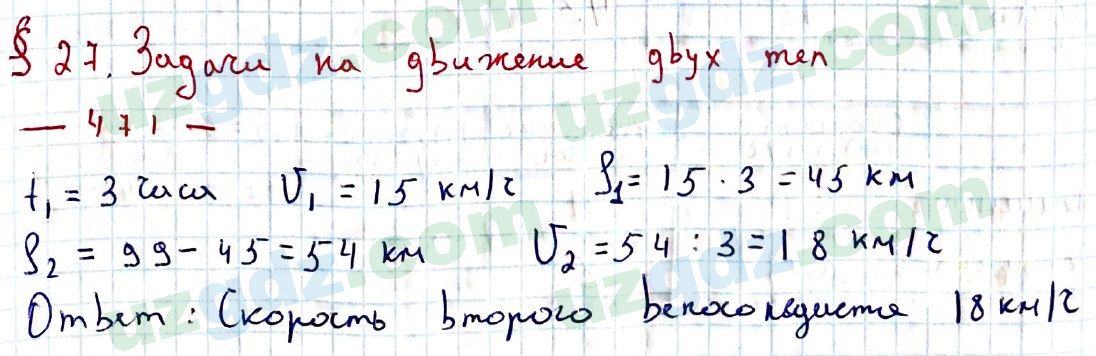 § 27. Задачи на движение двух тел
— 471 —
t₁ = 3 часа V₁ = 15 км/ч S₁ = 15 · 3 = 45 км
S₂ = 99 - 45 = 54 км V₂ = 54 : 3 = 18 км/ч
Ответ: Скорость второго велосипедиста 18 км/ч
uzgdz.com
uzgdz.com
uzgdz.com
uzgdz.com